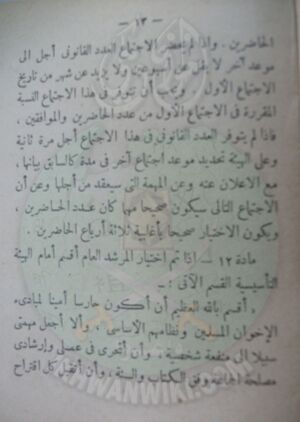 — ١٣ —
الحاضرين . واذا لم يحضر الاجتماع العدد القانونى أجل الى
موعد آخر لا يقل عن أسبوعين ولا يزيد عن شهر من تاريخ
الاجتماع الأول . ويجب أن تتوفر فى هذا الاجتماع النسبة
المقررة فى الاجتماع الأول من عدد الحاضرين والموافقين .
فاذا لم يتوفر العدد القانونى فى هذا الاجتماع أجل مرة ثانية
وعلى الهيئة تحديد موعد اجتماع آخر فى مدة كالسابق بيانها ،
مع الاعلان عنه وعن المهمة التى سيعقد من أجلها وعن أن
الاجتماع التالى سيكون صحيحا مهما كان عدد الحاضرين
ويكون الاختيار صحيحا بأغلبية ثلاثة أرباع الحاضرين .
مادة ١٢ — اذا تم اختيار المرشد العام أقسم أمام الهيئة
التأسيسية القسم الآتى : —
« أقسم بالله العظيم أن أكون حارسا أمينا لمبادىء
الإخوان المسلمين ونظامهم الأساسى ، وألا أجعل مهمتى
سبيلا الى منفعة شخصية ، وأن أتحرى فى عملى وإرشادى
مصلحة الجماعة وفق الكتاب والسنة ، وأن أتقبل كل اقتراح
IKHWANWIKI.COM